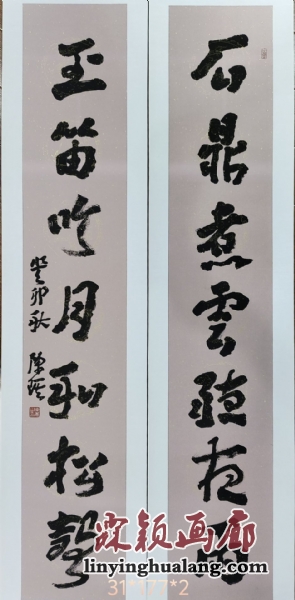 石鼎煮雲聽夜雨
玉笛吹月和松聲
癸卯秋
颖画廊
linyinghualang.com
31*177*2